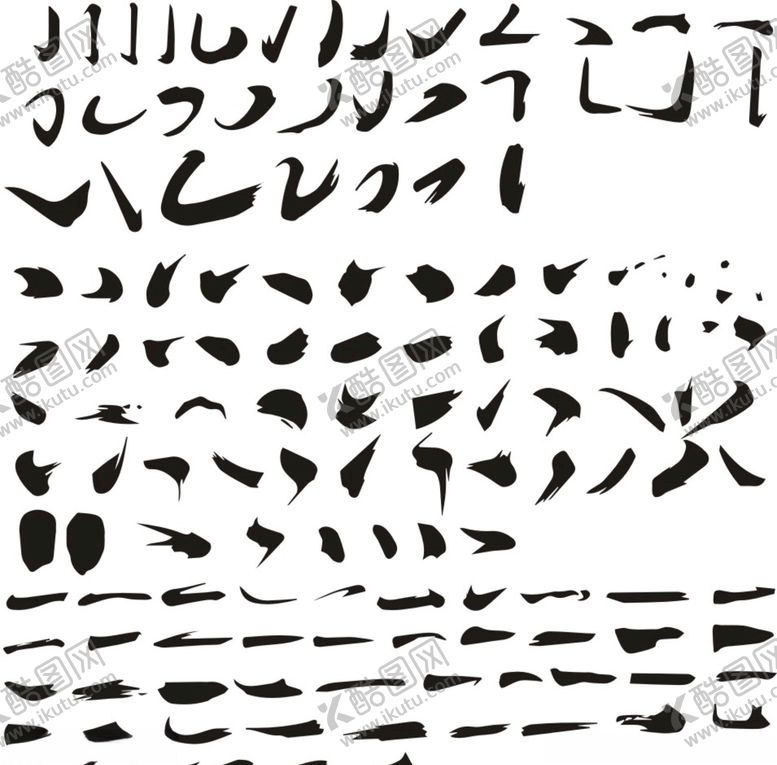 酷图网
www.ikutu.com
酷图网
www.ikutu.com
酷图网
www.ikutu.com
酷图网
www.ikutu.com
酷图网
www.ikutu.com
酷图网
www.ikutu.com
酷图网
www.ikutu.com
酷图网
www.ikutu.com
酷图网
www.ikutu.com